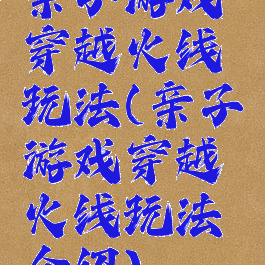 亲子游戏
穿越火线
玩法(亲子
游戏穿越
火线玩法
介绍)